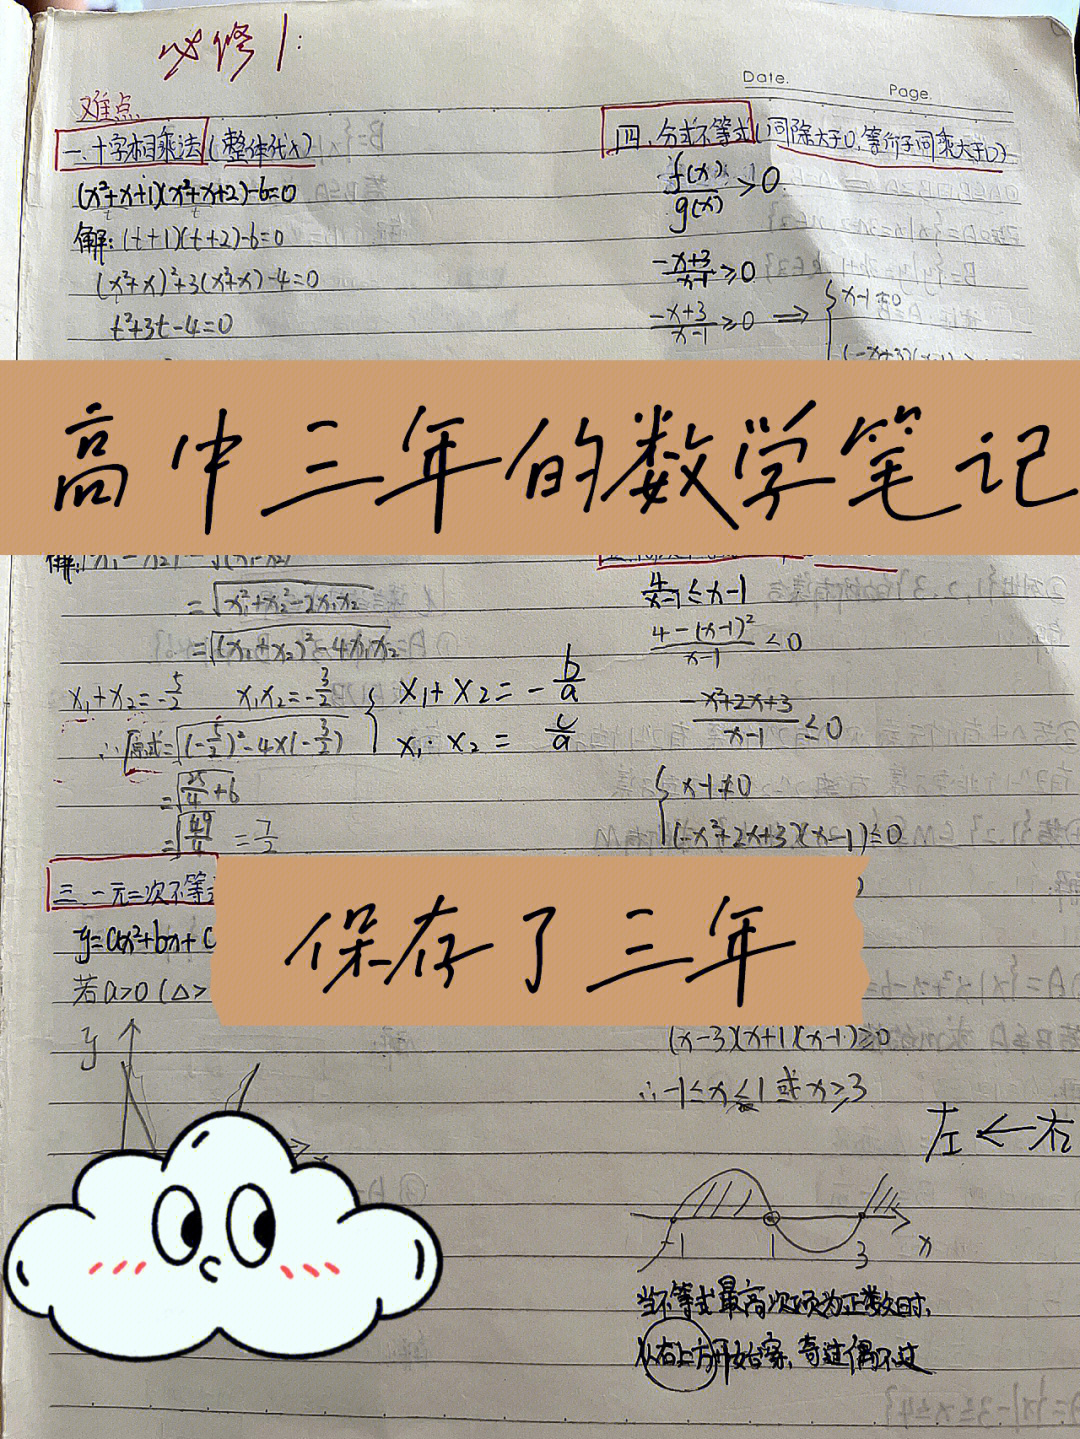 必修1:
Date.
Page.
难点
一.十字相乘法(整体代入)
(x²+x+1)(x²+x+2)-6=0
t t
解:(t+1)(t+2)-6=0
(x²+x)²+3(x²+x)-4=0
t²+3t-4=0
四.分式不等式(同除大于0,等价于同乘大于0)
f(x)/g(x)>0
-x+3/x-1≥0
-x+3/x-1≥0 ⇒ { x-1≠0
(-x+3)(x-1)≥
高中三年的数学笔记
解:|x₁-x₂|=√(x₁-x₂)²
=√x₁²+x₂²-2x₁x₂
=√(x₁+x₂)²-4x₁x₂
x₁+x₂=-5/2 x₁x₂=-3/2 { x₁+x₂=-b/a
x₁·x₂=c/a
∴原式=√(-5/2)²-4×(-3/2)
=√25/4+6
=√49/4=7/2
4/x-1≤x-1
4-(x-1)²/x-1≤0
-x²+2x+3/x-1≤0
{ x-1≠0
(-x²+2x+3)(x-1)≤0
三.一元二次不等式
y=ax²+bx+c
若a>0(Δ>
y
x
保存了三年
(x-3)(x+1)(x-1)≥0
∴-1≤x≤1或x≥3
左←右
-1 1 3 x
当不等式最高次项为正数时,
从右上方开始穿,奇过偶不过